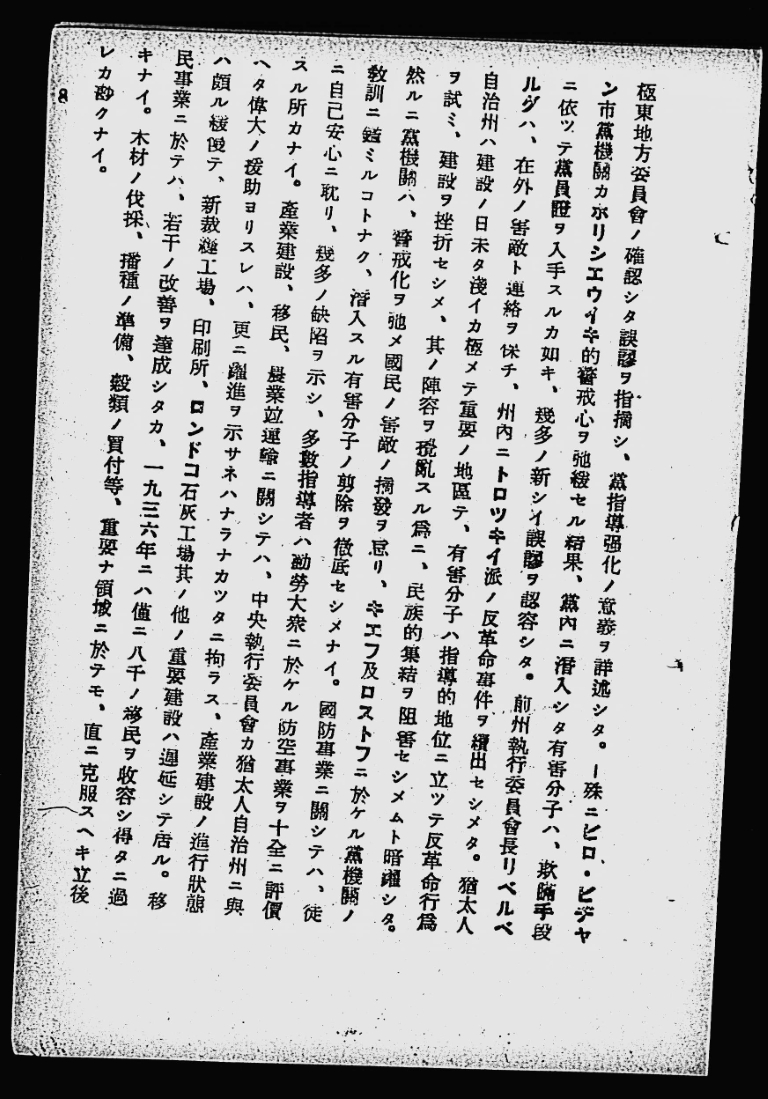 極東地方委員會ノ確認シタ誤謬ヲ指摘シ、黨指導强化ノ意義ヲ詳述シタ。ー殊ニビロ・ビヂヤ
ン市黨機關カボリシエウィキ的警戒心ヲ弛緩セル結果、黨內ニ潛入シタ有害分子ハ、欺瞞手段
ニ依ツテ黨員證ヲ入手スルカ如キ、幾多ノ新シイ誤謬ヲ認容シタ。前州執行委員會長リベルベ
ルグハ、在外ノ害敵ト連絡ヲ保チ、州內ニトロツキイ派ノ反革命事件ヲ續出セシメタ。猶太人
自治州ハ建設ノ日未タ淺イカ極メテ重要ノ地區テ、有害分子ハ指導的地位ニ立ツテ反革命行爲
ヲ試ミ、建設ヲ挫折セシメ、其ノ陣容ヲ攪亂スル爲ニ、民族的集結ヲ阻害セシメムト暗躍シタ。
然ルニ黨機關ハ、警戒化ヲ弛メ國民ノ害敵ノ摘發ヲ怠リ、キエフ及ロストフニ於ケル黨機關ノ
敎訓ニ鑑ミルコトナク、潛入スル有害分子ノ剪除ヲ徹底セシメナイ。國防事業ニ關シテハ、徒
ニ自己安心ニ耽リ、幾多ノ缺陷ヲ示シ、多數指導者ハ勤勞大衆ニ於ケル防空事業ヲ十全ニ評價
スル所カナイ。產業建設、移民、農業竝運輸ニ關シテハ、中央執行委員會カ猶太人自治州ニ與
ヘタ偉大ノ援助ヨリスレハ、更ニ躍進ヲ示サネハナラナカツタニ拘ラス、產業建設ノ進行狀態
ハ頗ル緩慢テ、新裁縫工場、印刷所、ロンドコ石灰工場其ノ他ノ重要建設ハ遲延シテ居ル。移
民事業ニ於テハ、若干ノ改善ヲ達成シタカ、一九三六年ニハ僅ニ八千ノ移民ヲ收容シ得タニ過
キナイ。木材ノ伐採、播種ノ準備、穀類ノ買付等、重要ナ領域ニ於テモ、直ニ克服スヘキ立後
レカ尠クナイ。
8